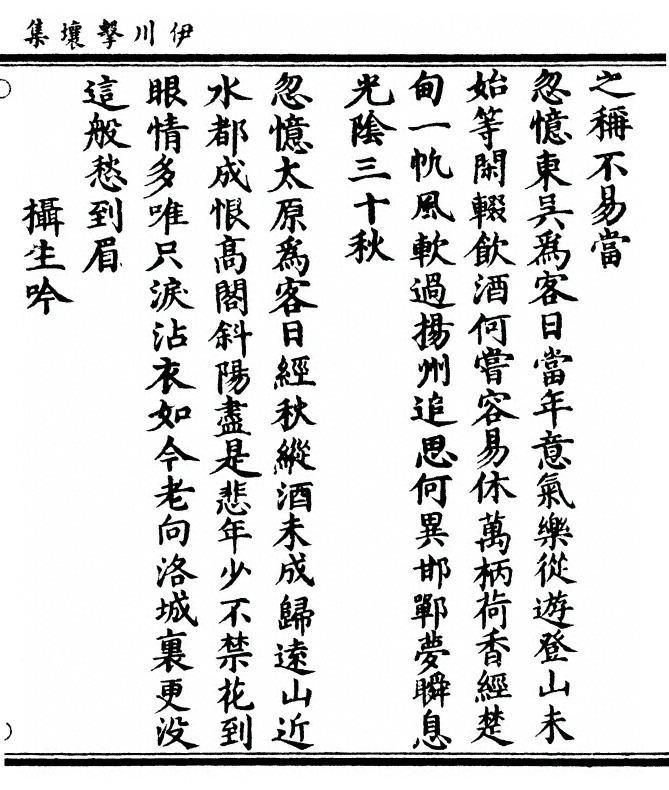 伊川擊壤集
之稱不易當
忽憶東吳為客日當年意氣樂從遊登山未
始等閑輟飲酒何嘗容易休萬柄荷香經楚
甸一帆風軟過揚州追思何異邯鄲夢瞬息
光陰三十秋
忽憶太原為客日經秋縱酒未成歸遠山近
水都成恨高閣斜陽盡是悲年少不禁花到
眼情多唯只淚沾衣如今老向洛城裏更没
這般愁到眉
攝生吟